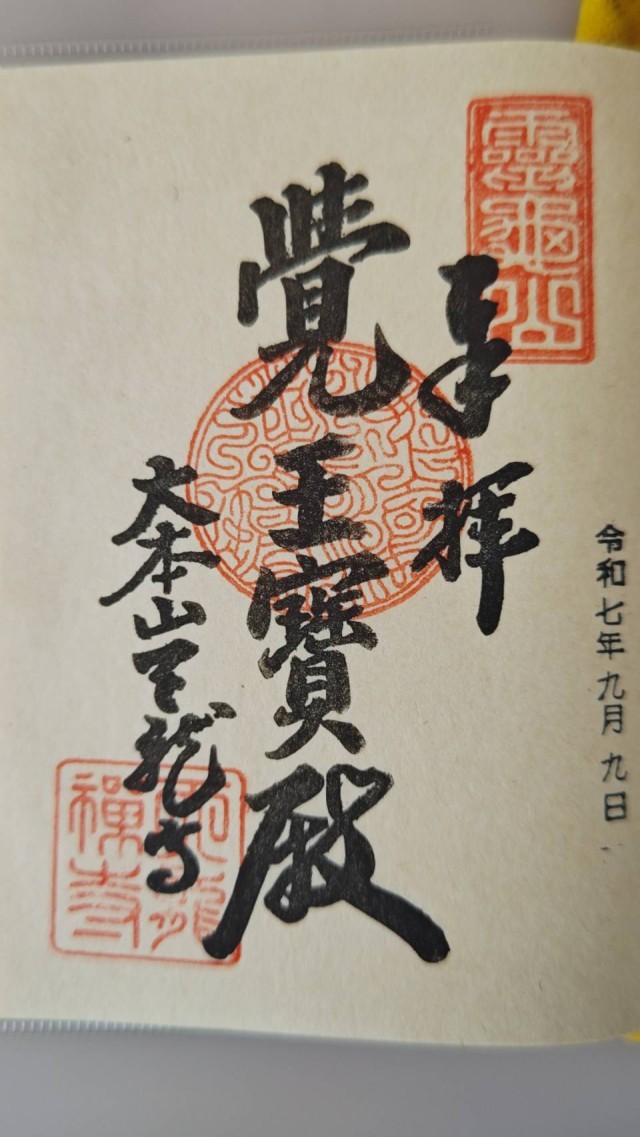 靈龜山
奉拝
令和七年九月九日
覺王寶殿
大本山天龍寺
天龍禅寺